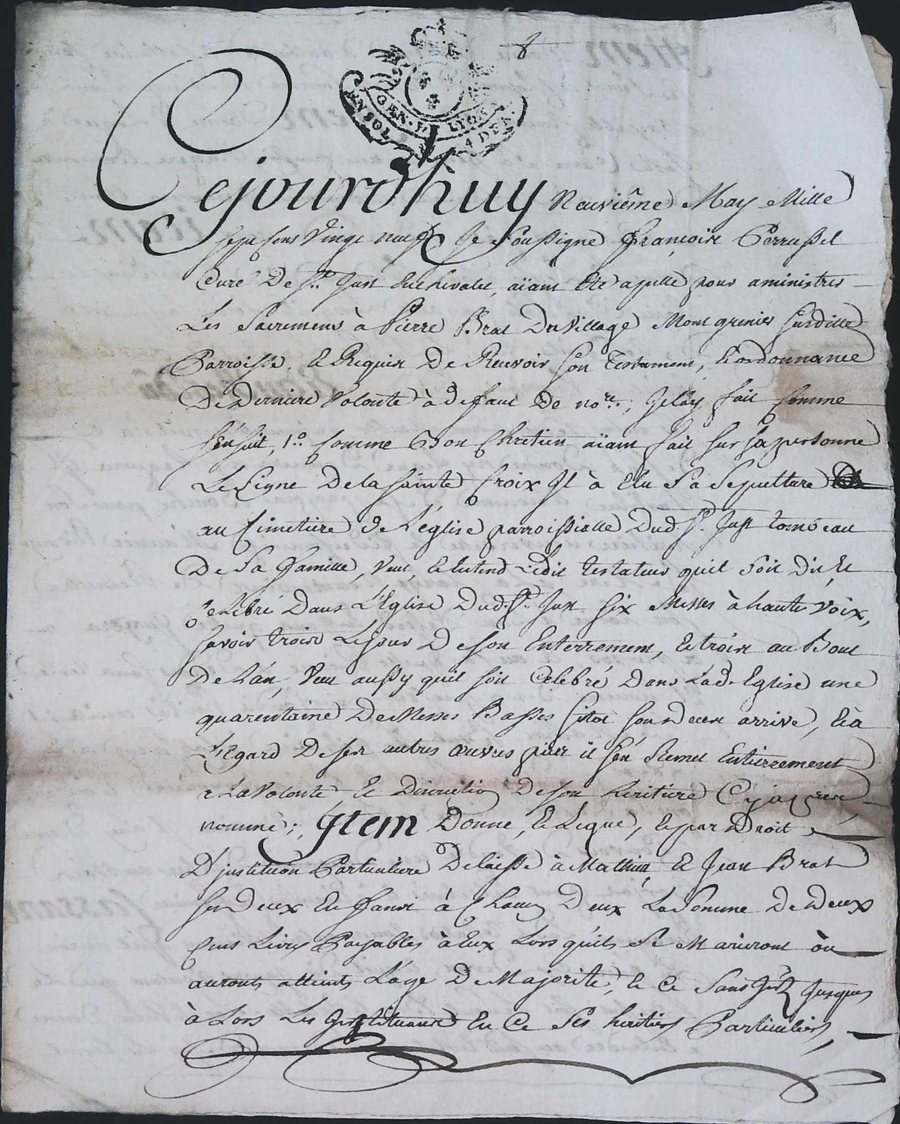 8
GEN. LYON
UN SOL 4 DEN.
Cejourd'huy Neuvième May Mille
sept Cens Vingt neuf Je Soussigné François Perrussel
Curé De St. Just Enchevalet, aïant Eté apellé pour aministrer
Les Sacremens à Pierre Brat Du Village Montgrenier Susditte
Parroisse, et Requis De Recevoir son Testament, Et ordonnance
De Derniere Volonté à defaut De nore.; Je L'ay fait Comme
s'ensuit, 1o. Comme Bon Chretien aïant fait sur sa personne
Le Signe De la Sainte Croix Jl à Elu Sa Sepulture
au Cimetiére de L'église parroissialle Dud. St. Just tombeau
De Sa Famille, Veut, et Entend Ledit testateur quil Soit Dit, Et
Celebré Dans L'Eglise Dud. St. Just Six Messes à haute Voix,
savoir trois Le jour De son Enterrement, et trois au Bout
De L'an, Veut aussy quil soit Celebré Dans Lad. Eglise une
quarentaine De Messes Basses sitot son deces arrivé, Et à
L'Egard De ses autres œuvres pies il s'en Remet Entierrement
a La Volonté Et Discretion De son heritiere Cy apres
nommée; Jtem Donne, et Legue, et par Droit
D'Jstitution Particuliere Delaisse à Mathieu Et Jean Brat
ses Deux Enfans à Chacun D'eux La Somme De Deux
Cens Livres Payables à Eux Lors qu'ils Se Mariront où
auront atteint L'age De Majorité, et Ce Sans jusques
à Lors Les Jnstituant En Ce Ses heritiers Particuliers,